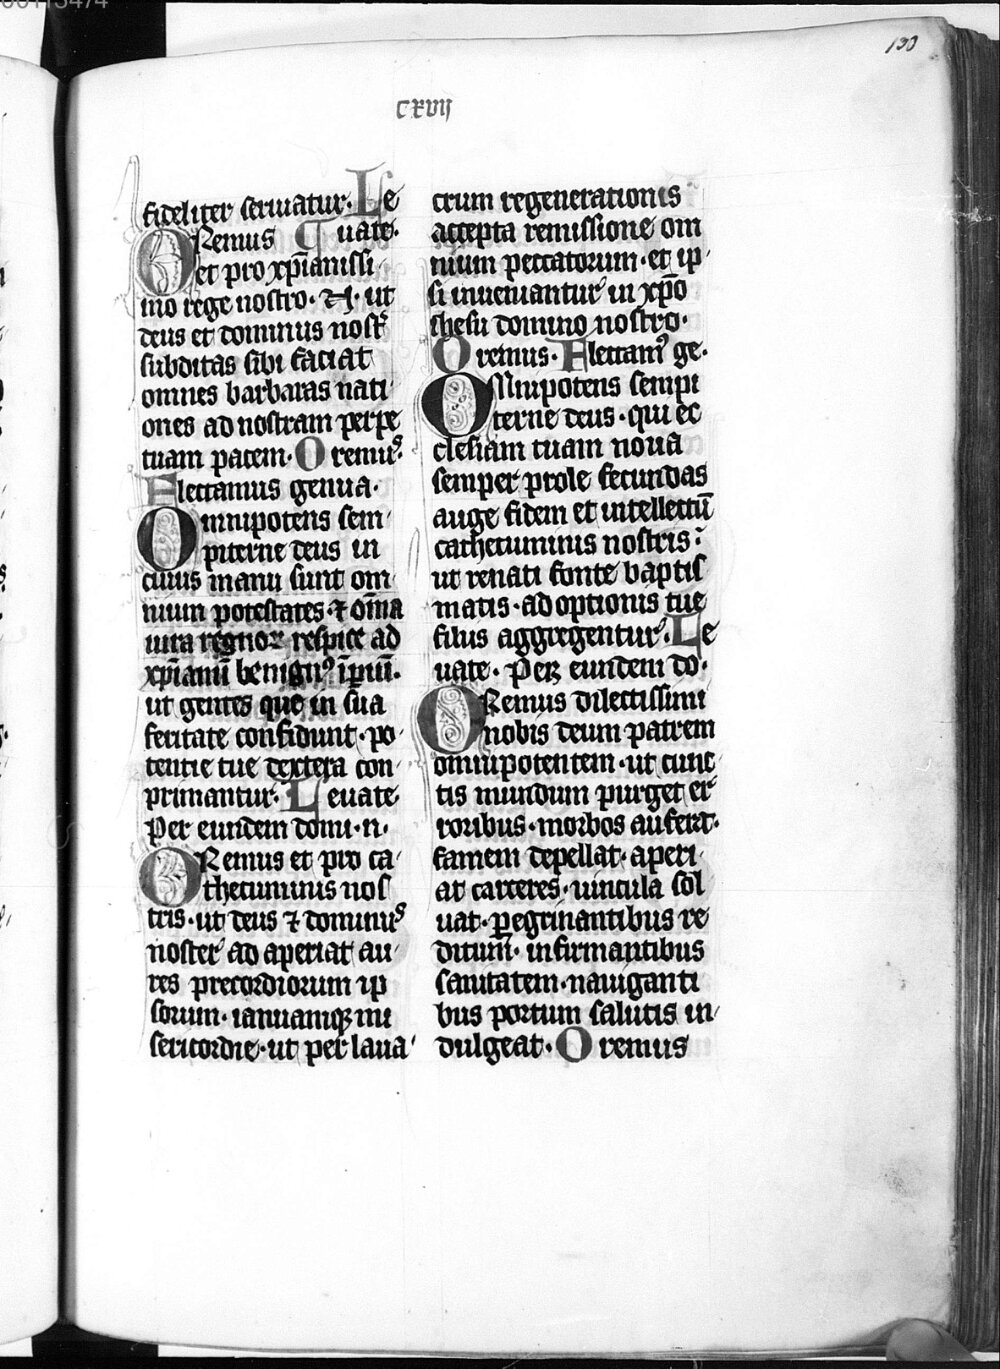 CXVIJ
fideliter seruatur. Le
ORemus ¶ uate.
et pro xp̄ianissi
mo rege nostro. N. ut
deus et dominus nost̄r
subditas sibi faciat
omnes barbaras nati
ones ad nostram perpe
tuam pacem. Oremus.
Flectamus genua.
Omnipotens sem
piterne deus in
cuius manu sunt om
nium potestates ⁊ om̄ia
iura regnoꝝ respice ad
xp̄ianū benignꝰ īꝑiū.
ut gentes que in sua
feritate confidunt. po
tentie tue dextera con
primantur. Leuate
Per eundem domi. n.
ORemus et pro ca
thecuminis nos
tris. ut deus ⁊ dominus
noster ad aperiat au
res precordiorum ip
sorum. ianuamqꝫ mi
sericordie. ut per laua
crum regenerationis
accepta remissione om
nium peccatorum. et ip
si inueniantur in xp̄o
ihesu domino nostro.
Oremus. Flectamꝰ ge.
OMnipotens sempi
terne deus. qui ec
clesiam tuam noua
semper prole fecundas
auge fidem et intellectū
cathecuminis nostris:
ut renati fonte baptis
matis. adoptionis tue
filiis aggregentur. Le
uate. Per eundem do.
ORemus dilectissimi
nobis deum patrem
omnipotentem. ut cunc
tis mundum purget er
roribus. morbos auferat.
famem depellat. aperi
at carceres. uincula sol
uat. ꝑegrinantibus re
ditum. infirmantibus
sanitatem. nauiganti
bus portum salutis in
dulgeat. Oremus